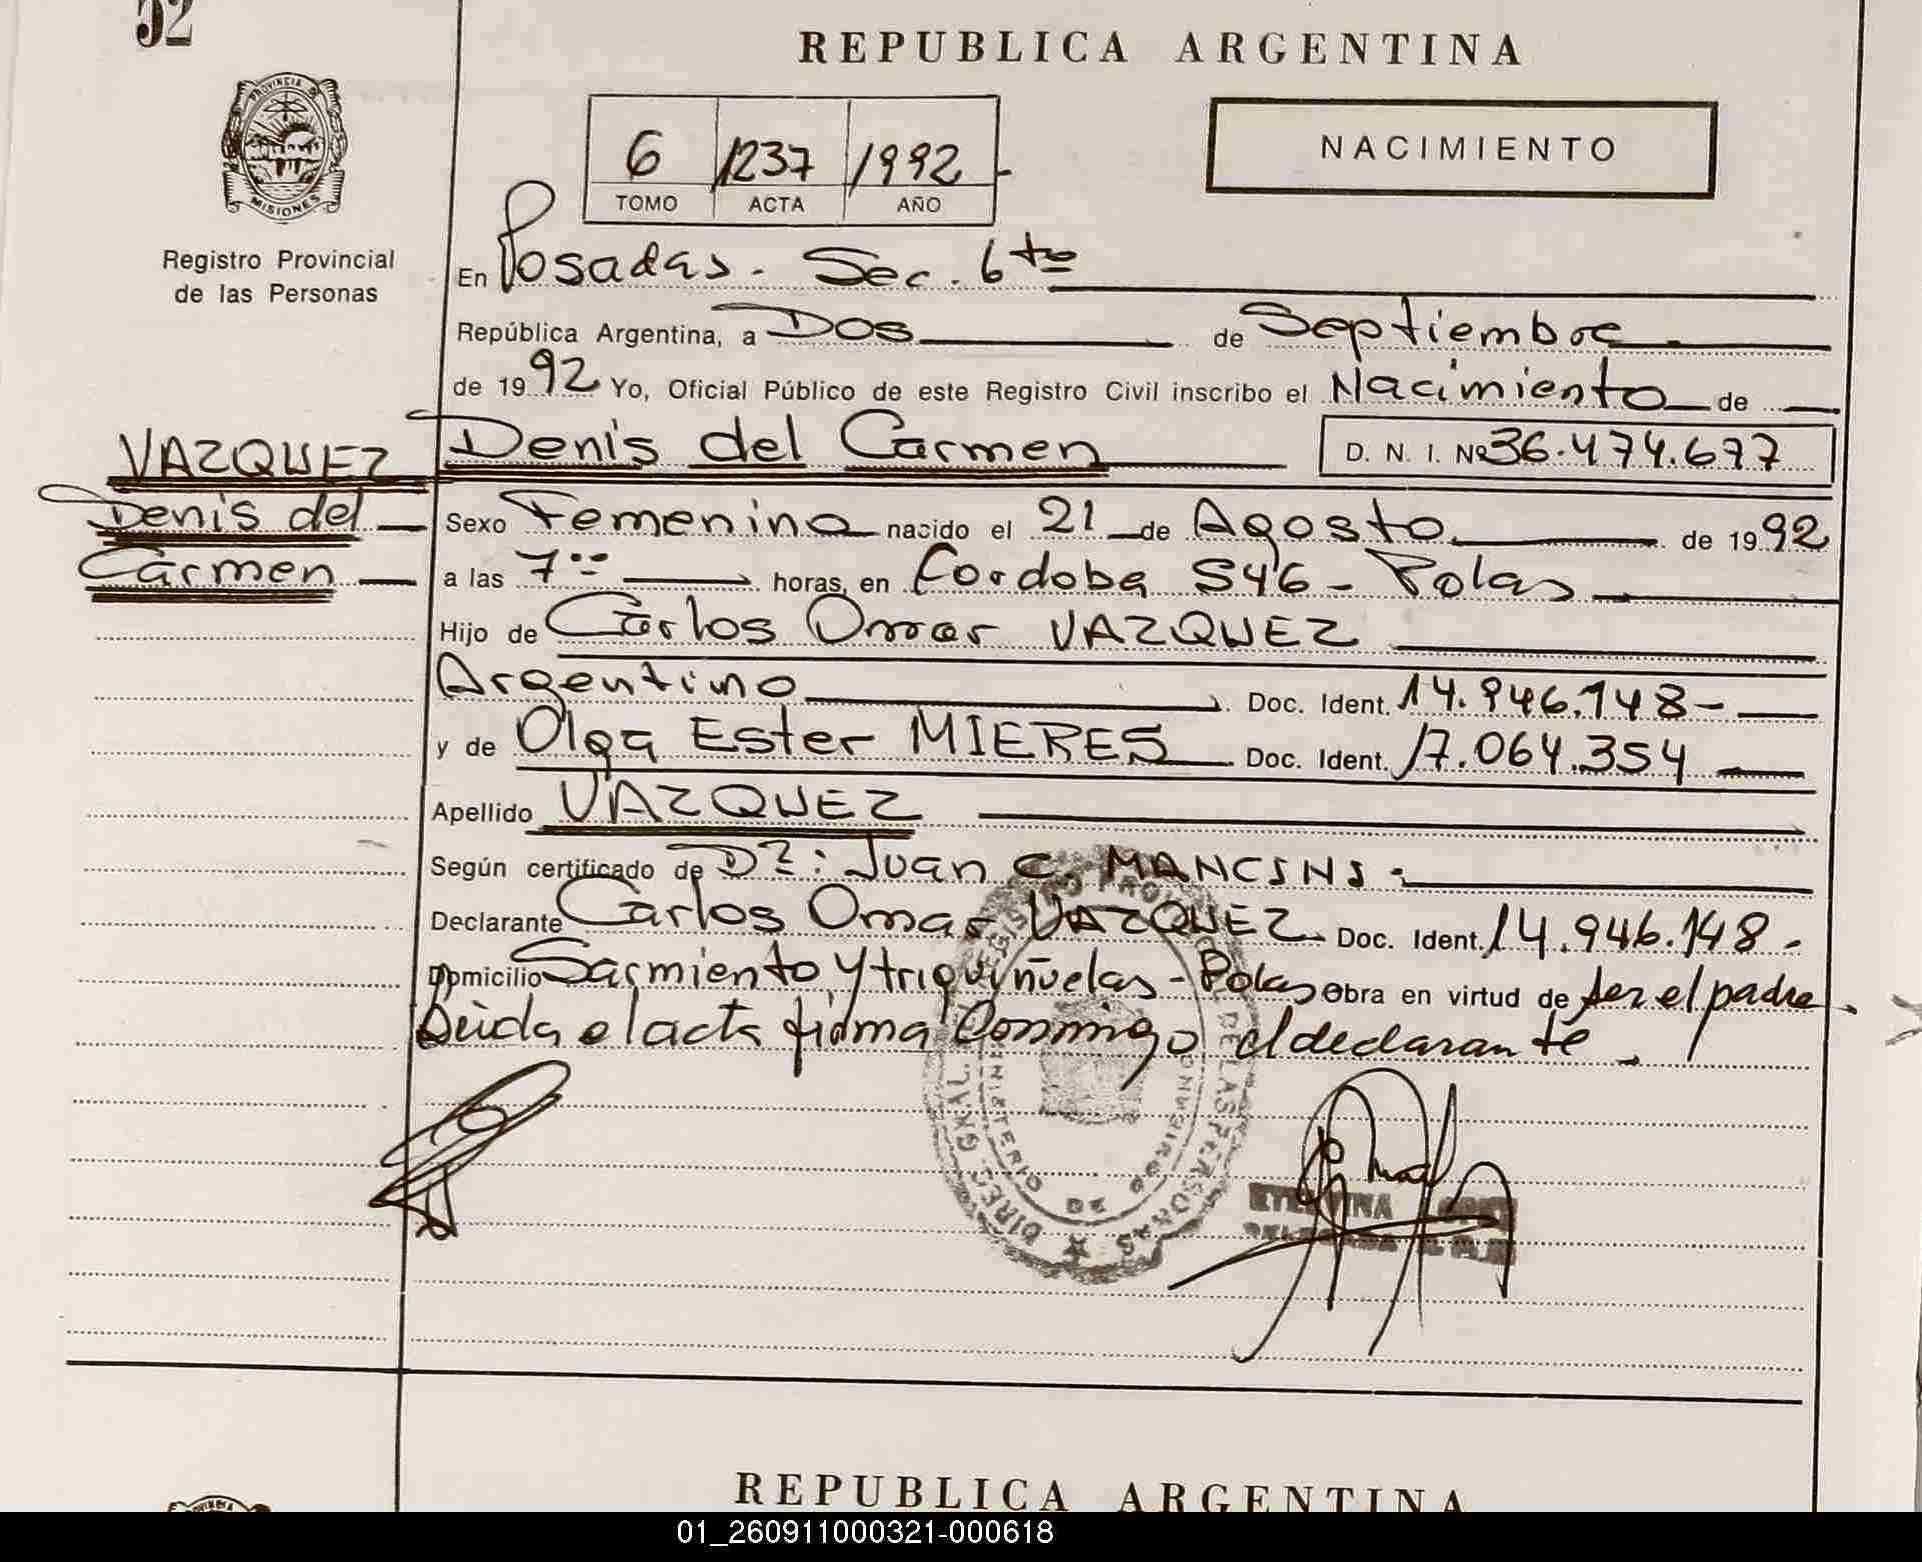 52
REPUBLICA ARGENTINA
PROVINCIA D
MISIONES
Registro Provincial
de las Personas
6 1237 1992
TOMO ACTA AÑO
NACIMIENTO
En Posadas - Sec. 6to
República Argentina, a Dos de Septiembre
de 1992 Yo, Oficial Público de este Registro Civil inscribo el Nacimiento de
VAZQUEZ
Denis del
Carmen
Denis del Carmen D. N. I. Nº 36.474.677
Sexo Femenino nacido el 21 de Agosto de 1992
a las 7 horas, en Cordoba 546 - Pdas
Hijo de Carlos Omar VAZQUEZ
Argentino Doc. Ident. 14.946.148 -
y de Olga Ester MIERES Doc. Ident. 17.064.354
Apellido VAZQUEZ
Según certificado de Dr: Juan C. MANCINI.
Declarante Carlos Omar VAZQUEZ. Doc. Ident. 14.946.148 -
Domicilio Sarmiento y triquiñuelas - Pdas Obra en virtud de ser el padre.
Leida el acta firma conmigo el declarante.
DIREC. GRAL. REGISTRO PROVINCIAL DE LAS PERSONAS
MINISTERIO DE
REPUBLICA ARGENTINA
01_260911000321-000618